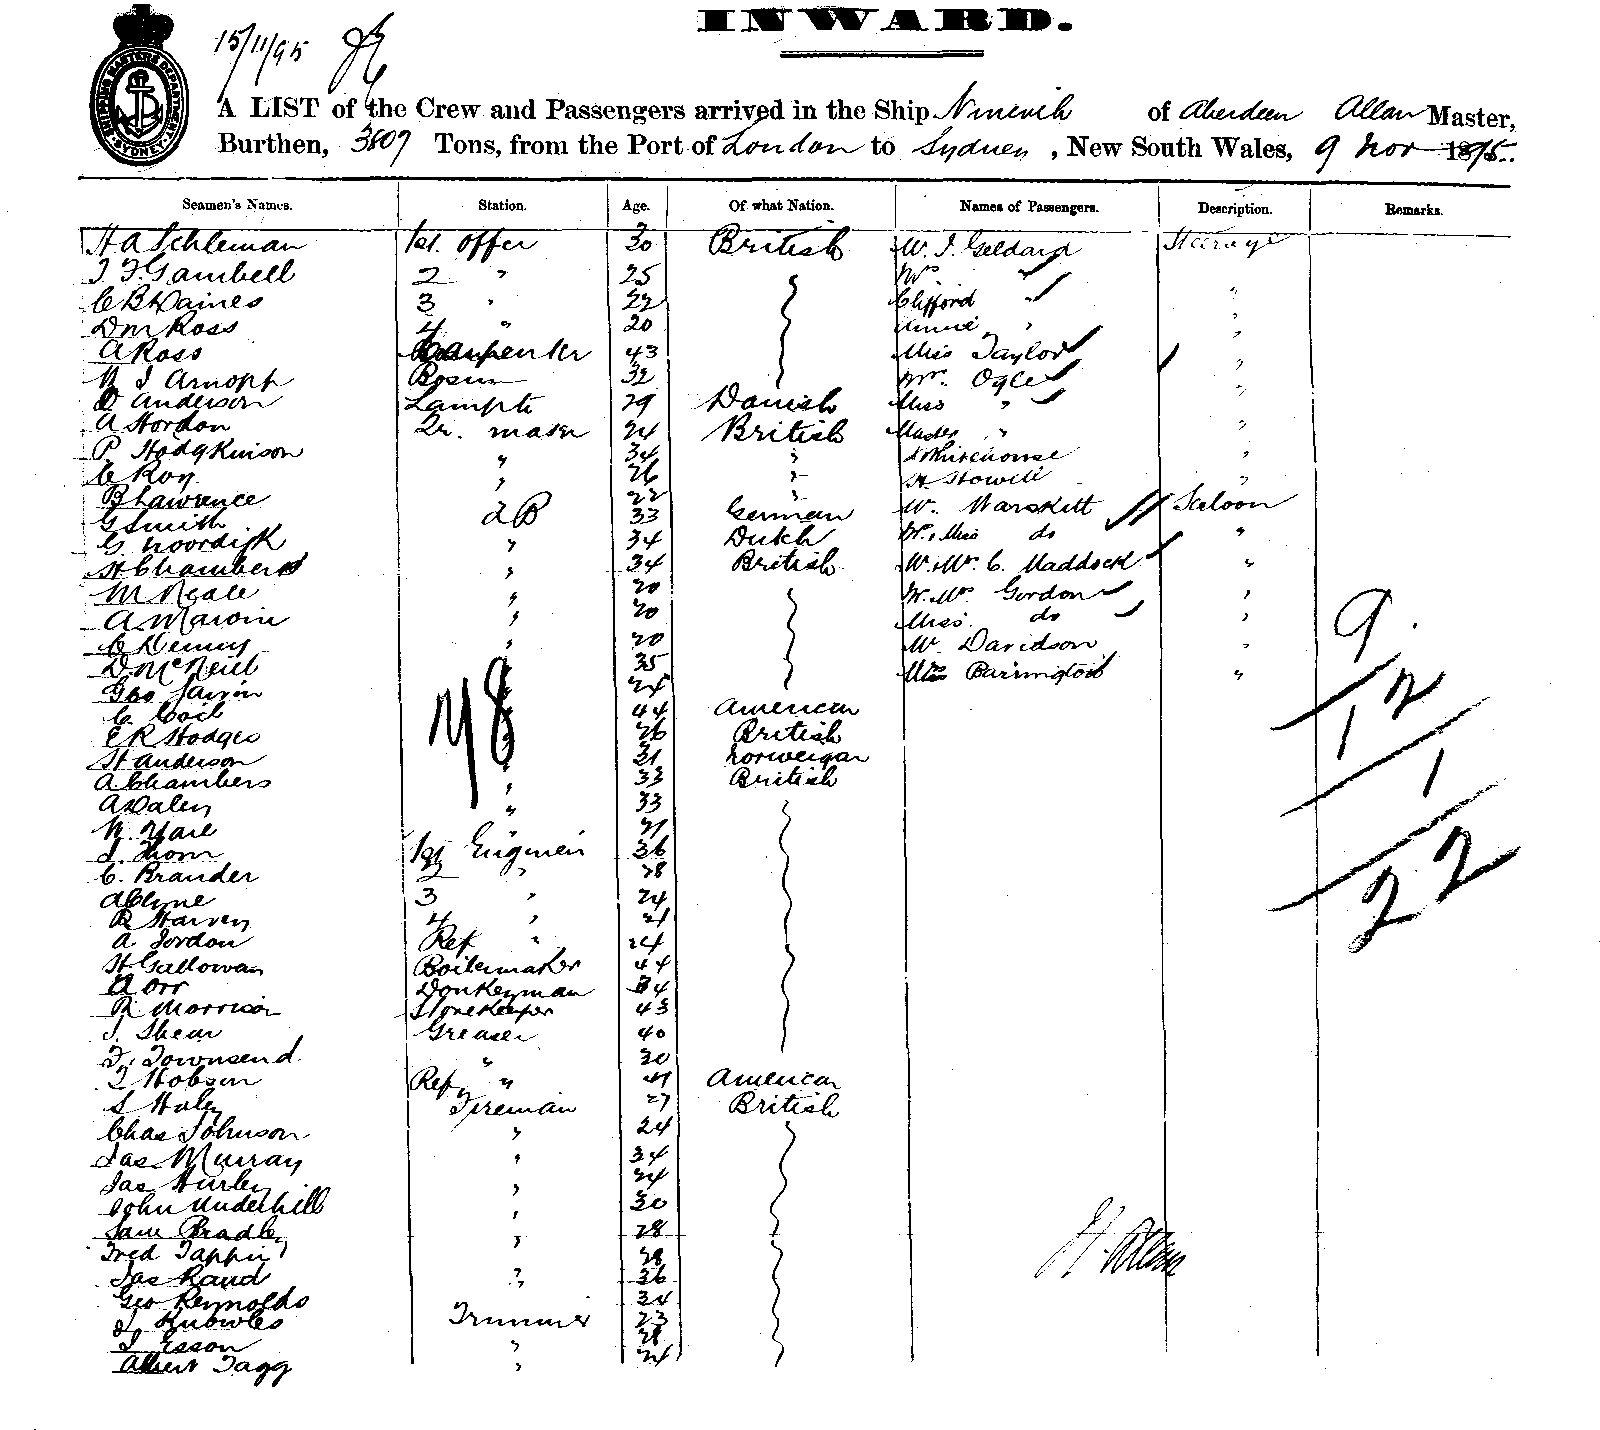 INWARD.
15/11/95
SHIPPING MASTERS DEPARTMENT SYDNEY
A LIST of the Crew and Passengers arrived in the Ship Nineveh of Aberdeen Allan Master,
Burthen, 3809 Tons, from the Port of London to Sydney, New South Wales, 9 Nov 1895.
Seamen's Names. Station. Age. Of what Nation. Names of Passengers. Description. Remarks.
H A Schleman 1st. Offer 30 British W. J. Geldard Steerage
J F Gambell 2 " 25 Mrs "
C B Haines 3 " 22 Clifford " "
D M Ross 4 " 20 Annie " "
A Ross Carpenter 43 Miss Taylor "
W J Arnoph Bosun 32 Mr. Ogle "
D Anderson Lampts 29 Danish Miss " "
A Hordon Qr. maser 24 British Master " "
P Hodgkinson " 34 " Whitehouse "
C Roy " 26 " H Stowell "
B Lawrence " 22 " W. Warskitt Saloon
G Smith A B 33 German Mrs. Miss do "
G. Noordijk " 34 Dutch
H Chambers " 34 British W. Mrs C. Maddock "
M Neale " 20 W. Mrs Gordon "
A Marvin " 20 Miss. do "
C Denny " 20 W. Davidson "
D. McNeill 35 Miss Barrington "
Geo 24
C. Coil 44 American
E R Hodges 26 British
H Anderson 31 Norweigan
A Chambers " 33 British
A Daley " 33
W. Yare 21
J. Thom 1st Engineir 36
C. Brander 2 " 28
A Clyne 3 " 24
R Harvey 4 " 21
A. Jordon Ref " 24
H Galloway Boilermaker 44
A Orr Donkeyman 34
R Morrison Storekeeper 43
J. Shear Greaser 40
F. Townsend " 30
J Hobson Ref " 41 American
S Haley Fireman 27 British
Chas Johnson " 24
Jas Murray " 34
Jas Hurley " 24
John Underhill " 30
Sam Bradley " 28
Fred Tappin " 28
Jas Rand " 36
Geo Reynolds " 34
J. Knowles Trimmer 23
J Esson " 28
Albert Tagg " 24
78
9.
12
1
22
H. Allan